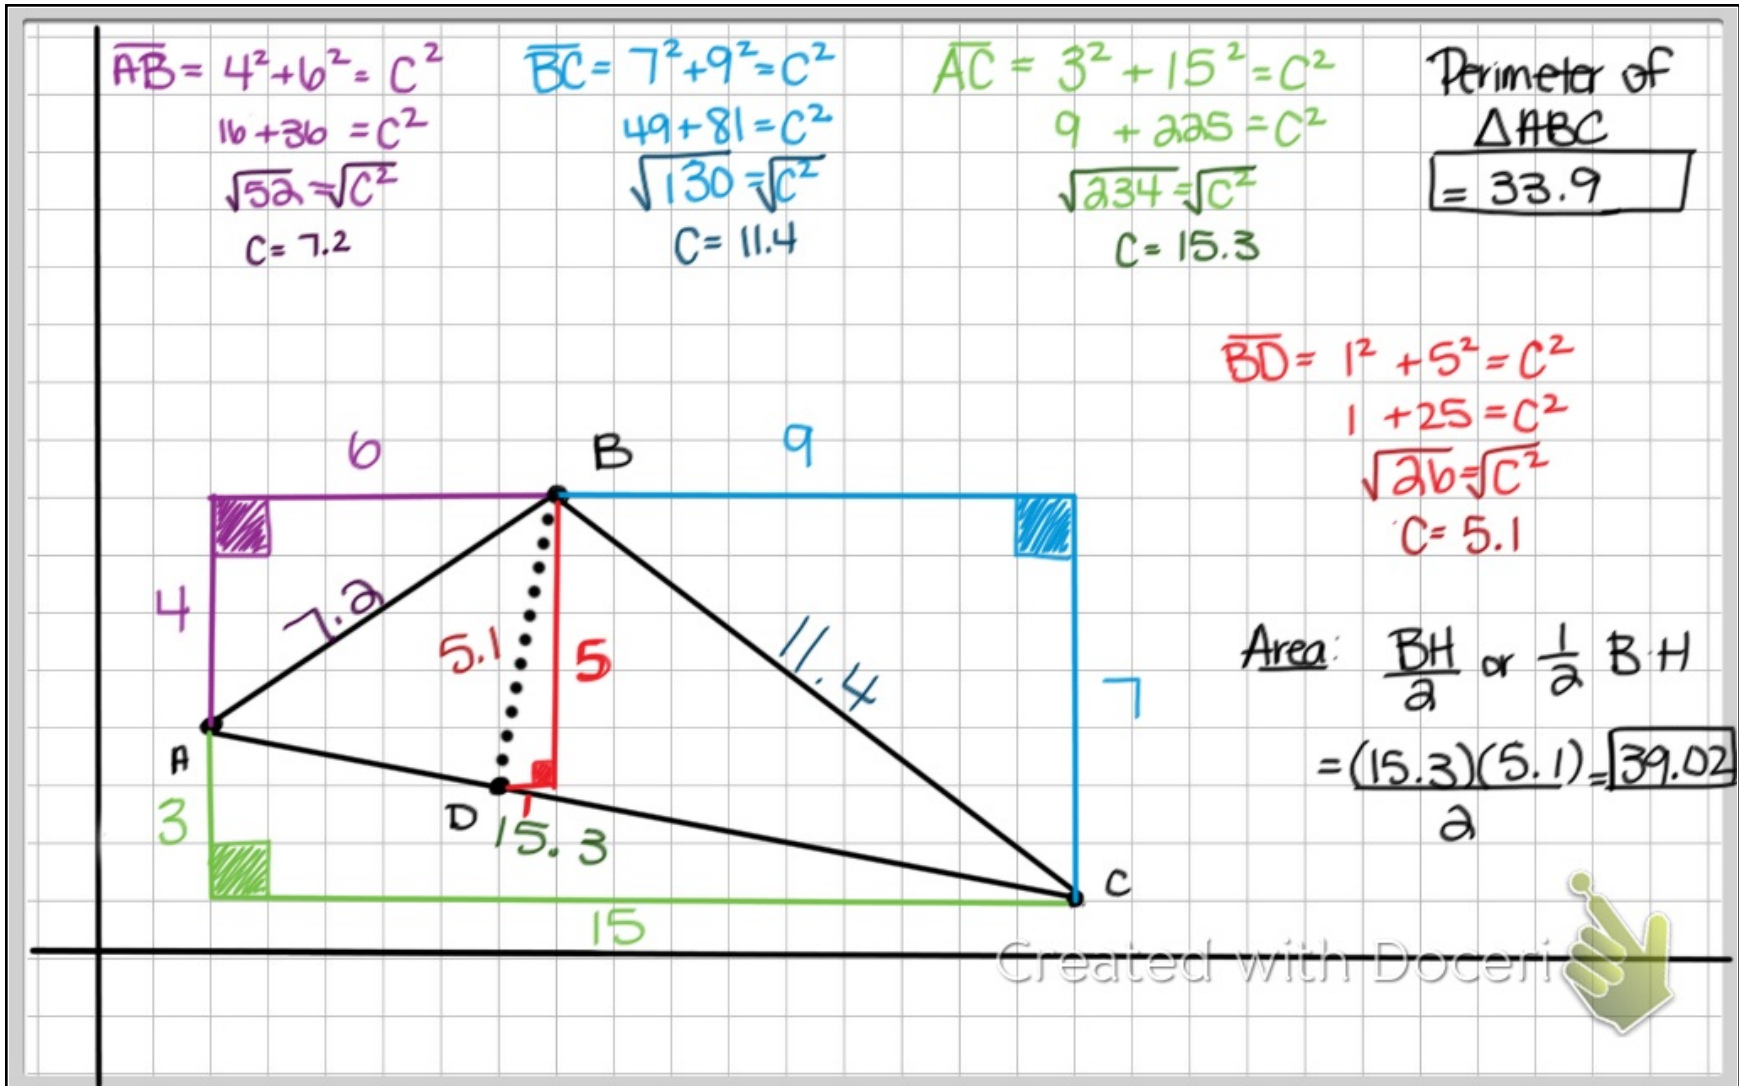 AB = 4²+6² = C²
16+36 = C²
√52 = √C²
C = 7.2
BC = 7²+9² = C²
49+81 = C²
√130 = √C²
C = 11.4
AC = 3² + 15² = C²
9 + 225 = C²
√234 = √C²
C = 15.3
Perimeter of
△ABC
= 33.9
BD = 1² + 5² = C²
1 + 25 = C²
√26 = √C²
C = 5.1
Area: BH/2 or 1/2 B·H
= (15.3)(5.1)/2 = 39.02
6
B
9
4
7.2
5.1
5
11.4
7
A
3
D
1
15.3
C
15
Created with Doceri